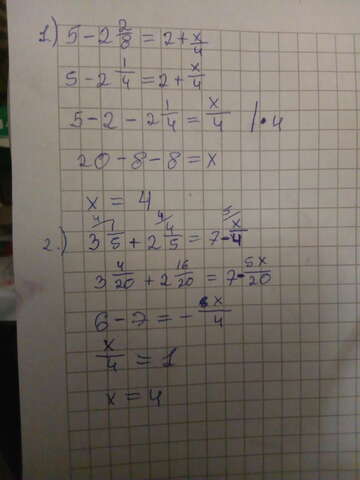 1.) 5 - 2 2/8 = 2 + x/4
5 - 2 1/4 = 2 + x/4
5 - 2 - 2 1/4 = x/4 | · 4
20 - 8 - 8 = x
x = 4
2.) 3 1/5 + 2 4/5 = 7 - x/4
3 4/20 + 2 16/20 = 7 - 5x/20
6 - 7 = - x/4
x/4 = 1
x = 4